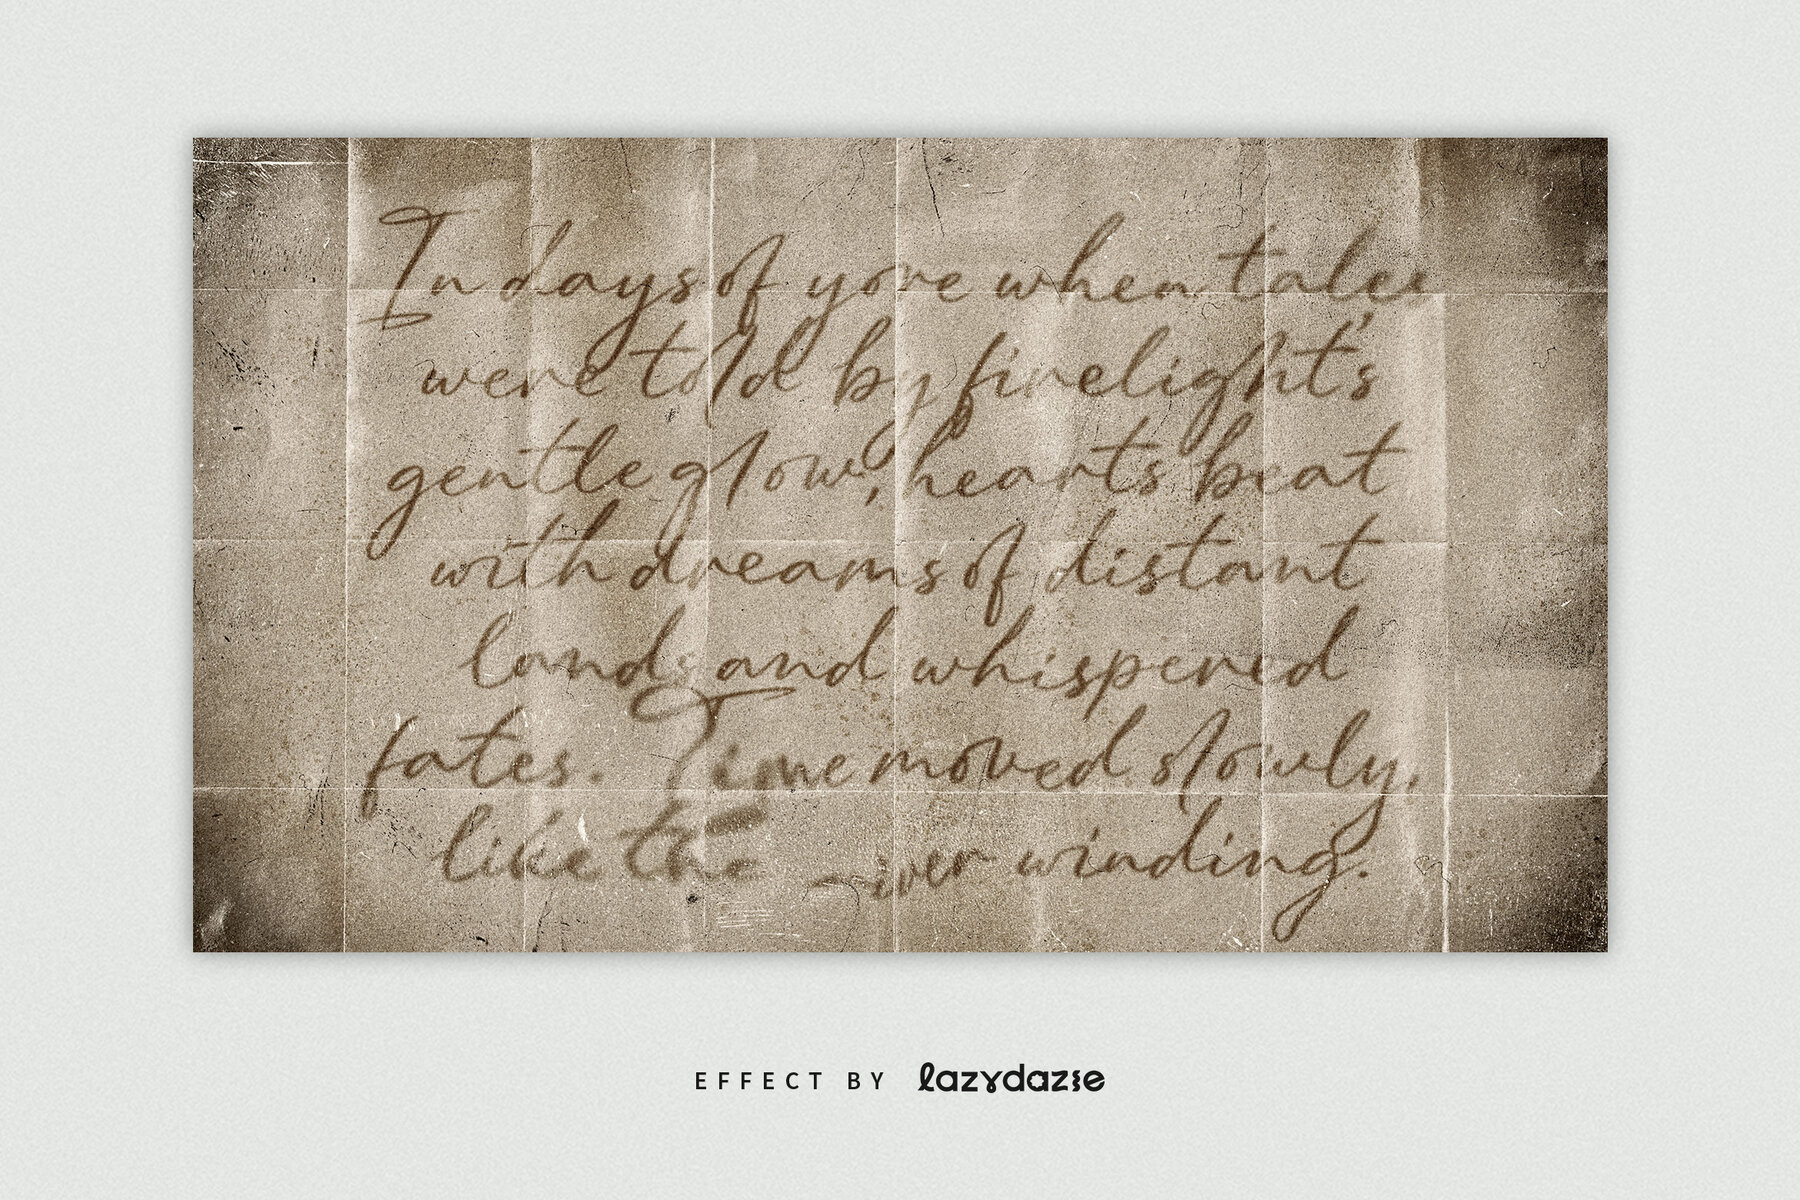 In days of yore when tales
were told by firelight's
gentle glow, hearts beat
with dreams of distant
lands and whispered
fates. Time moved slowly,
like the river winding.
EFFECT BY lazydazse